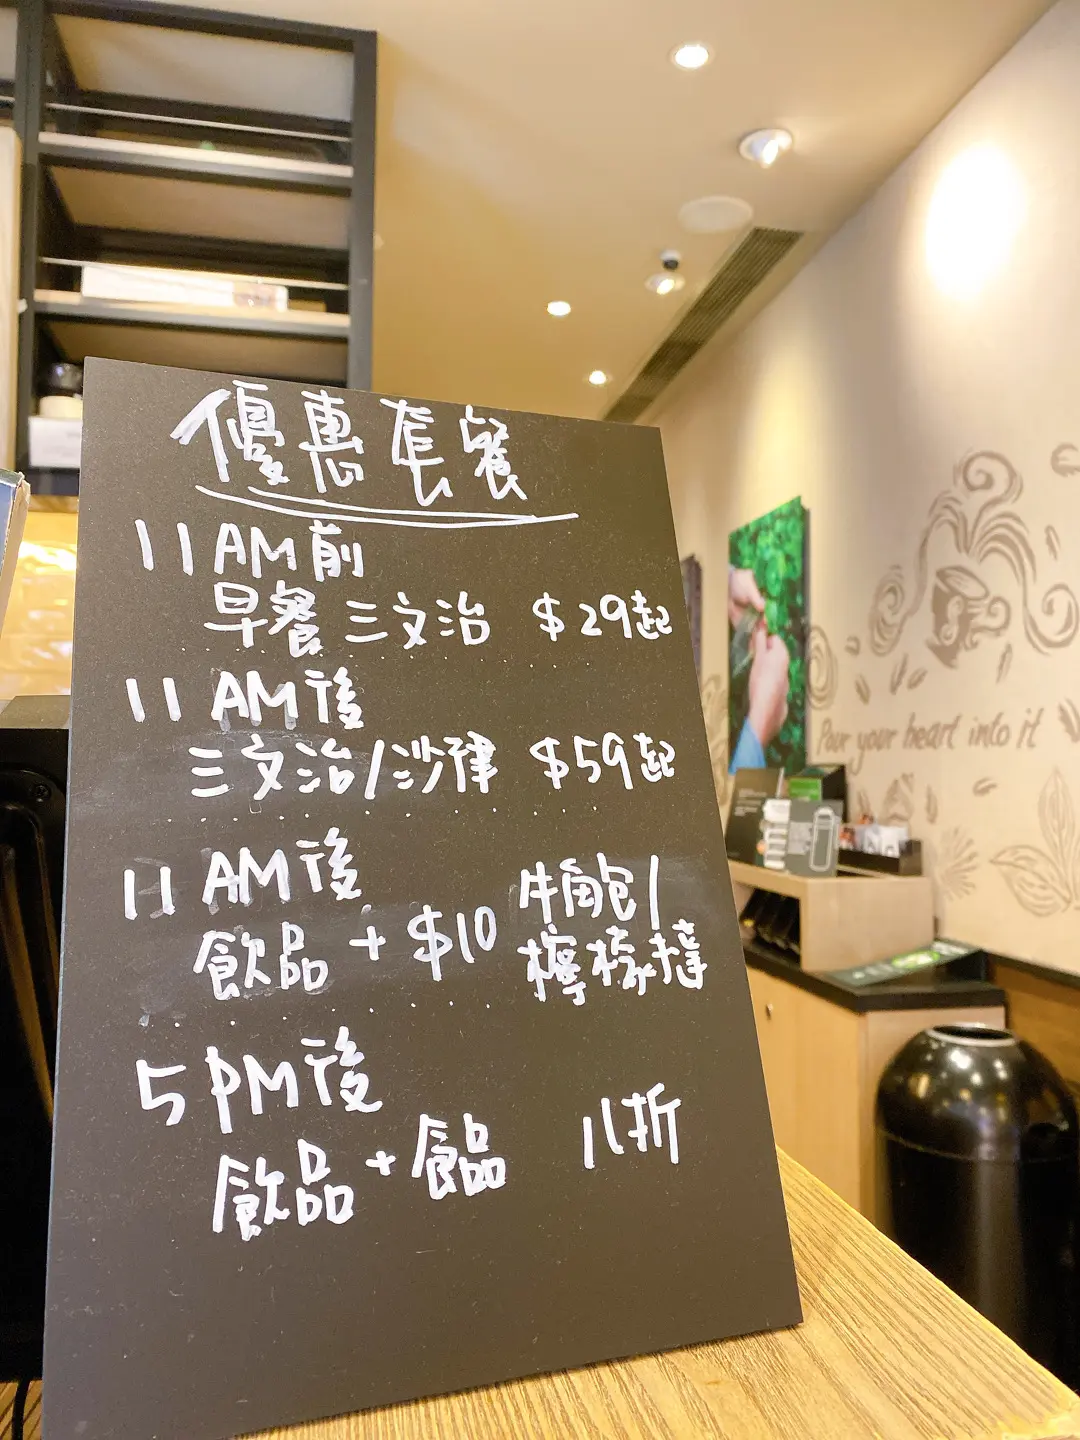 優惠套餐
11AM前
早餐三文治 $29起
11AM後
三文治/沙律 $59起
11AM後
飲品 + $10 牛角包/
檸檬撻
5PM後
飲品 + 食品 八折
Pour your heart into it